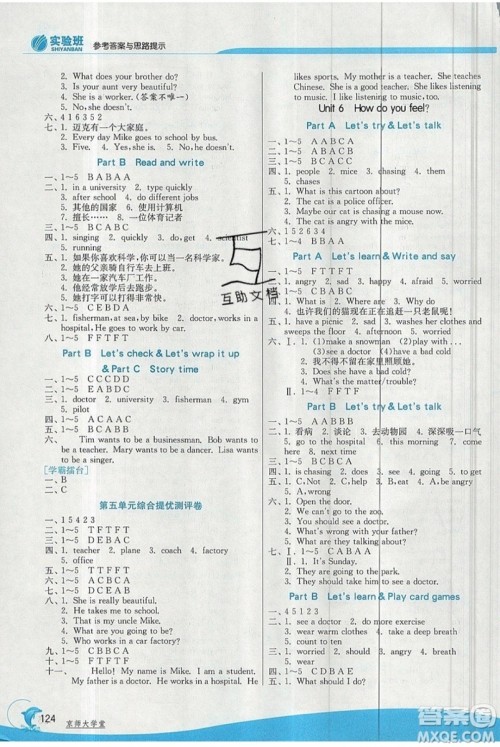 实验班
SHIYANBAN
参考答案与思路提示
2. What does your brother do?
3. Fishing is funny.
4. She is a worker. (答案不唯一)
5. No, she doesn't.
六、4 1 6 3 5 2
七、1. 迈克有一个大家庭。
2. Every day Mike goes to school by bus.
3. Five. 4. Yes, he is. 5. No, he doesn't.
Part B Read and write
一、1～5 BABAA
二、1. in a university 2. type quickly
3. after school 4. do different jobs
5. 其他的国家 6. 使用计算机
7. 擅长…… 8. 一位体育记者
三、1～5 BCBCA
四、1. singing 2. quickly 3. do, get 4. scientist
5. running
五、1. 如果你喜欢科学,你可以成为一名科学家。
2. 她的父亲骑自行车去上班。
3. 她在一家汽车厂工作。
4. 他经常放学后跑步。
5. 她打字可以打得很快。
六、1～5 CEBDA
七、1. fisherman, at sea, by bike 2. doctor, works in a
hospital, He goes to work by car.
八、1～5 FTFFT
Part B Let's check & Let's wrap it up
& Part C Story time
一、1～5 CCCDD
二、1～5 ACDBE
三、1. doctor 2. university 3. fisherman 4. gym
5. pilot
四、1～5 ACAAC
五、1～5 BACAB
六、 Tim wants to be a businessman. Bob wants to
be a teacher. Mary wants to be a dancer. Lisa
wants to be a singer.
[学霸擂台]
一、B
二、C
第五单元综合提优测评卷
一、1 5 4 2 3
二、1～5 TFTFT
三、1～5 ABBCA
四、1. teacher 2. plane 3. coach 4. factory
5. office
五、1～5 ADBAC
六、1～5 ABBCA
七、1～5 EDACB
八、1. My father is beautiful.
2. He takes me to school.
3. This is my uncle, Mike.
4. What are you going to be?
5. Who works in a car factory?
九、1～5 CBACB
十、1～5 FFTTT
十一、 Hello! My name is Mike. My father is a
doctor. He likes reading books. My brother
124
京师大学堂
likes sports. My mother is a teacher. She teaches
Chinese. She is a good teacher. She likes
listening to music. I like listening to music, too.
Unit 6 How do you feel?
Part A Let's try & Let's talk
一、1～5 AABCA
二、1～5 ABACA
三、1～5 BCACC
四、1. people 2. mice 3. chasing 4. them
5. chasing
五、1. What is this cartoon about?
2. The cat is a police officer.
3. The cat is chasing a mouse.
4. They are afraid of the cat.
5. The cat is angry with them.
六、1 5 2 6 3 4
七、1～4 BBAA
Part A Let's learn & Write and say
一、1～5 FTFTF
二、1. angry 2. sad 3. happy 4. afraid 5. ill
三、1～5 CBABC
四、1. am 2. happy 3. because 4. chasing 5. to
6. 也许我们的猫现在正在追赶老鼠呢!
五、I 1. have a picnic 2. sad 3. running
4. isn't, isn't 5. angry
六、I. 1. (1) make a snowman (2) play with …
2. 我不知道。
3. Does she have a bad cold?
4. What's the matter/trouble?
II. 1～5 TFTFF
Part B Let's try & Let's talk
一、1～5 AACCC
二、1. 看病 2. 谈论 3. 去动物园 4. 深深吸一口气
5. go to the hospital 6. this morning 7. come
here 8. feel cold
三、1～5 BCACC
四、1. is chasing 2. does 3. go 4. am 5. to have
五、1. C, Not 2. C, help 3. B, to see 4. A, because
5. C, feeling
六、1. Open the door.
2. We can't go to the zoo.
3. You should see a doctor.
4. What's wrong with your father?
5. Don't be angry.
七、I. 1～5 CABAA
II. 1. It's Sunday.
2. They are going to the park.
3. They should see a doctor.
Part B Let's learn & Play card games
一、4 5 1 2 3
二、1. see a doctor 2. do more exercise
3. wear warm clothes 4. take a deep breath
5. count to ten
三、1. worried 2. should 3. angry 4. wear
5. should
四、1～5 CDBAE
五、1. afraid 2. ill 3. sad 4. happy 5. angry
互助文档
答案圈
MXQE.COM